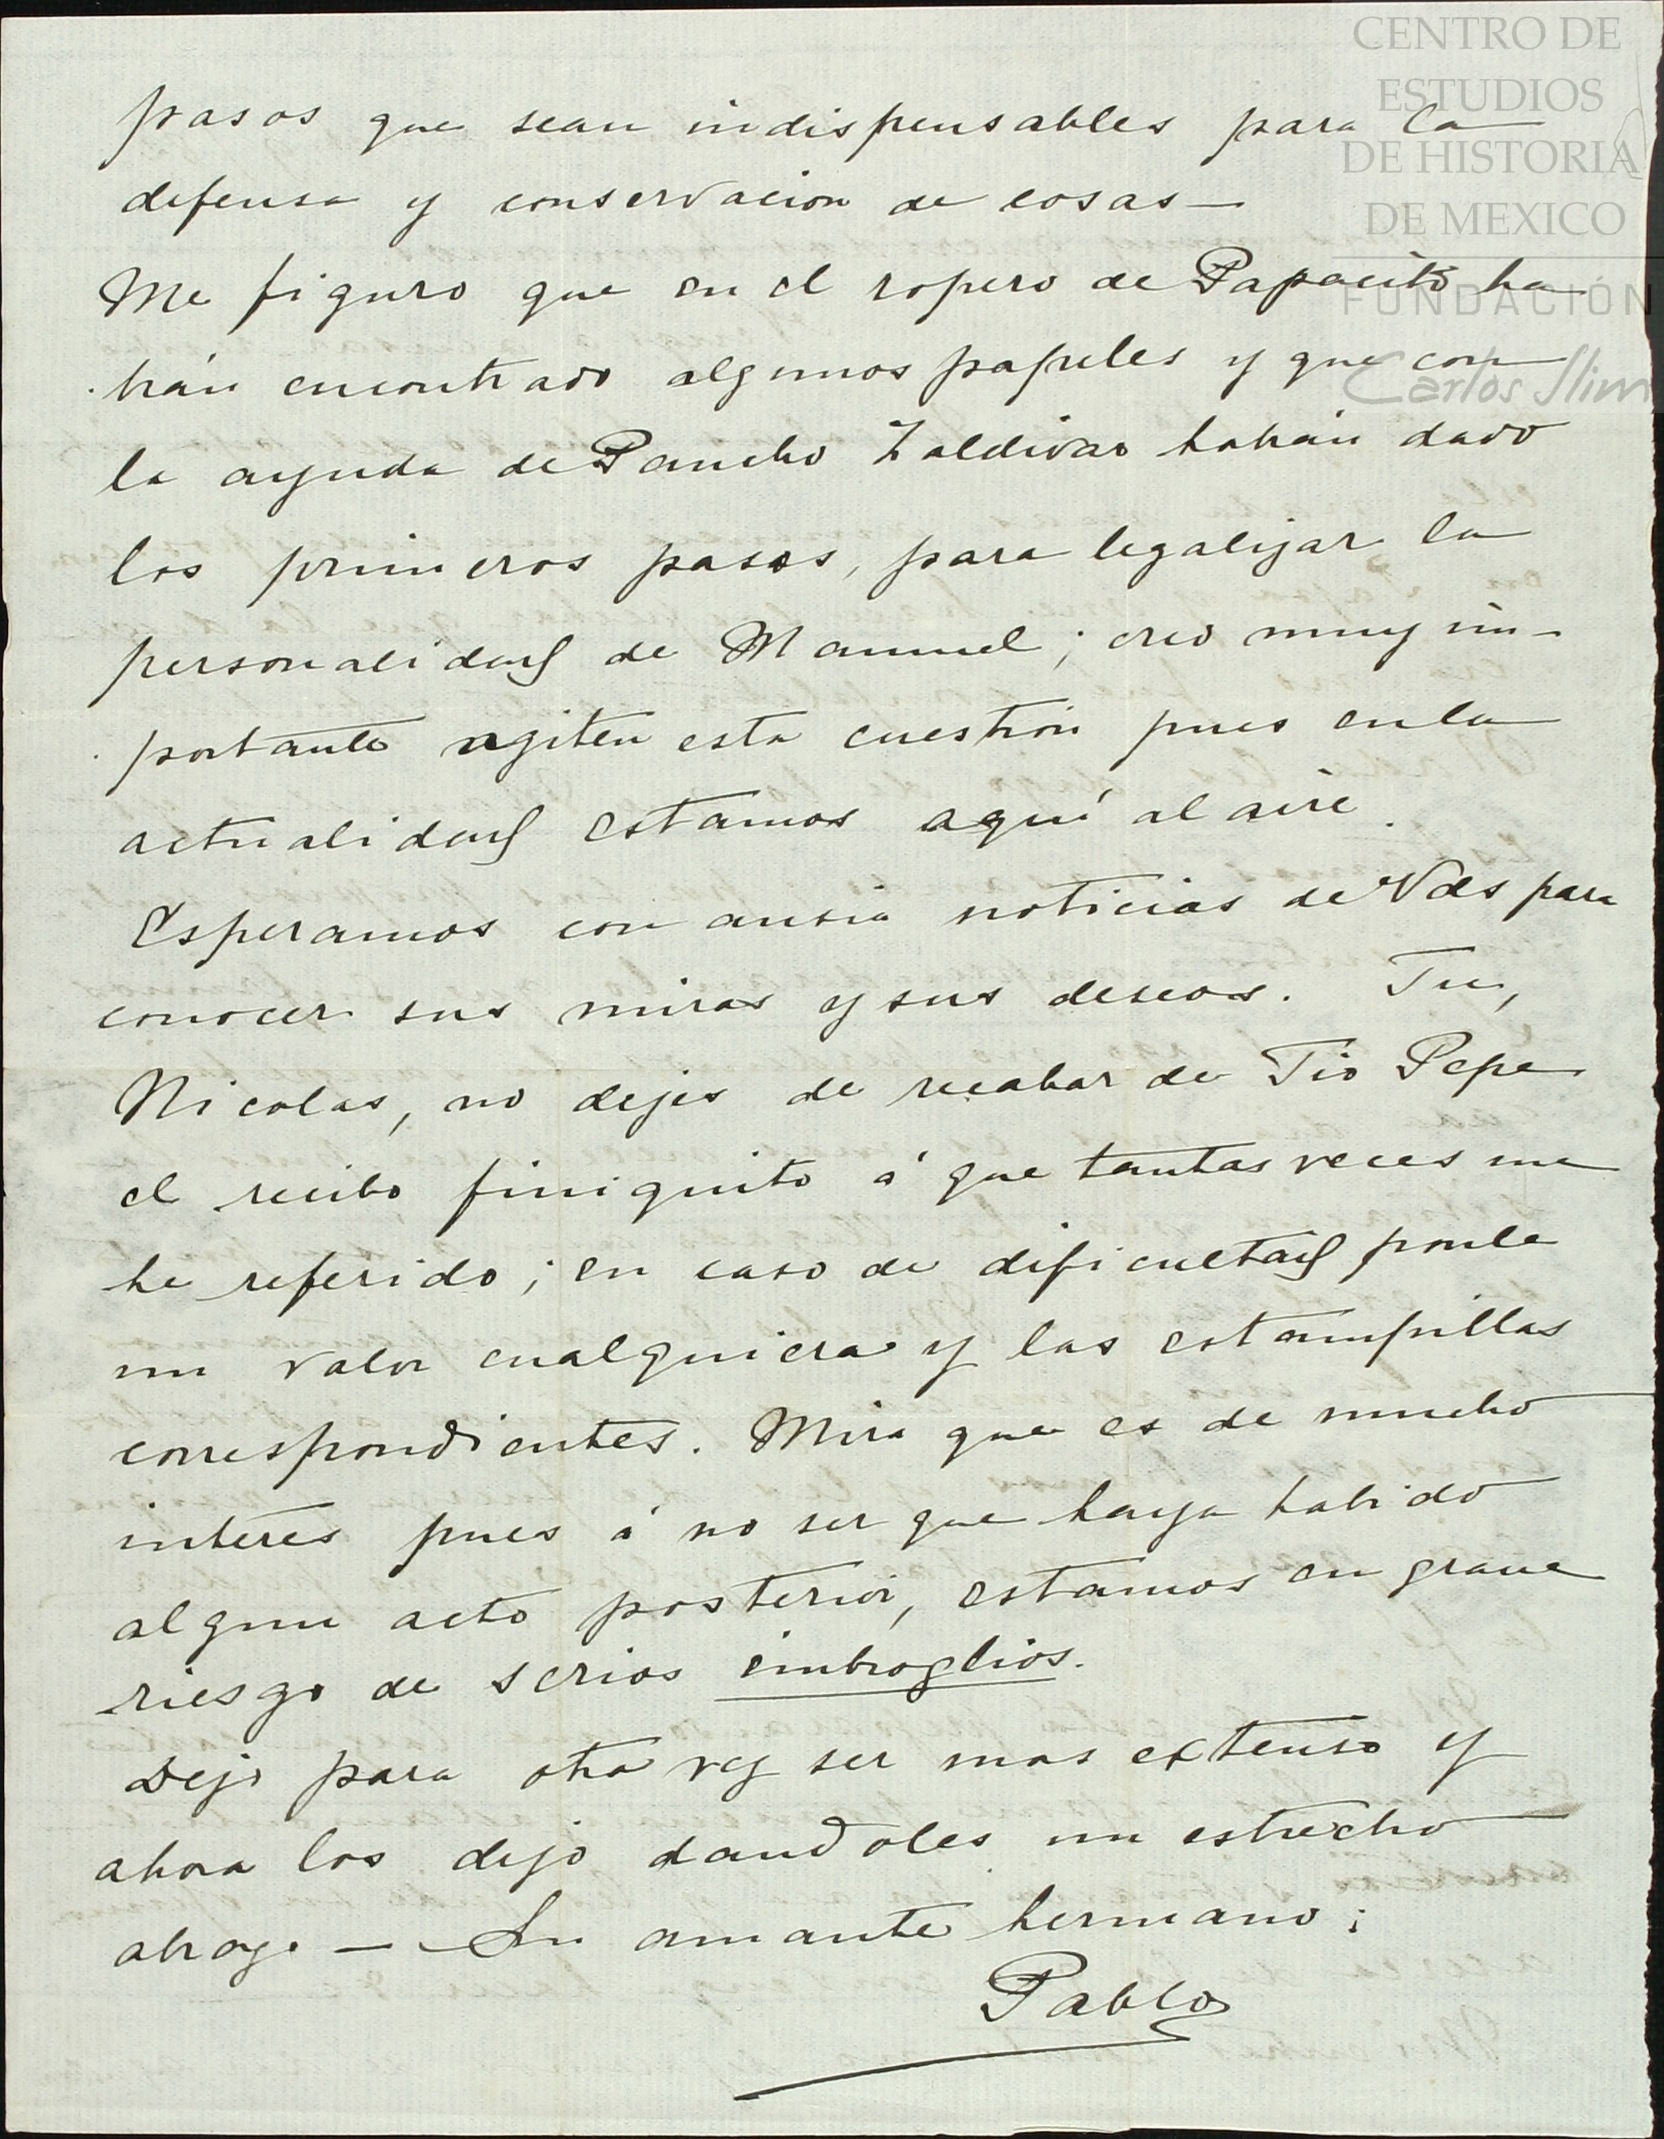 CENTRO DE
ESTUDIOS
DE HISTORIA
DE MEXICO
FUNDACIÓN
Carlos Slim
pasos que sean indispensables para la
defensa y conservacion de cosas—
Me figuro que en el ropero de Papacito ha
brán encontrado algunos papeles y que con
la ayuda de Pancho Zaldivar habrán dado
los primeros pasos, para legalizar la
personalidad de Manuel; creo muy im-
portante agiten esta cuestión pues en la
actualidad estamos aquí al aire.
Esperamos con ansia noticias de Vds para
conocer sus miras y sus deseos. Tu,
Nicolas, no dejes de recabar de Tio Pepe
el recibo finiquito á que tantas veces me
he referido; en caso de dificultad ponle
un valor cualquiera y las estampillas
correspondientes. Mira que es de mucho
interes pues á no ser que haya habido
algun acto posterior, estamos en grave
riesgo de serios imbroglios.
Dejo para otra vez ser mas extenso y
ahora los dejo dandoles un estrecho
abrazo — Su amante hermano;
Pablo